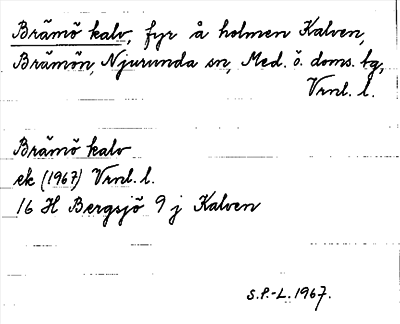 Brämö kalv, fyr å holmen Kalven,
Brämön, Njurunda sn, Med. ö. doms. tg,
Vrnl. l.
Brämö kalv
ek (1967) Vrnl. l.
16 H Bergsjö 9 j Kalven
S.P.-L. 1967.